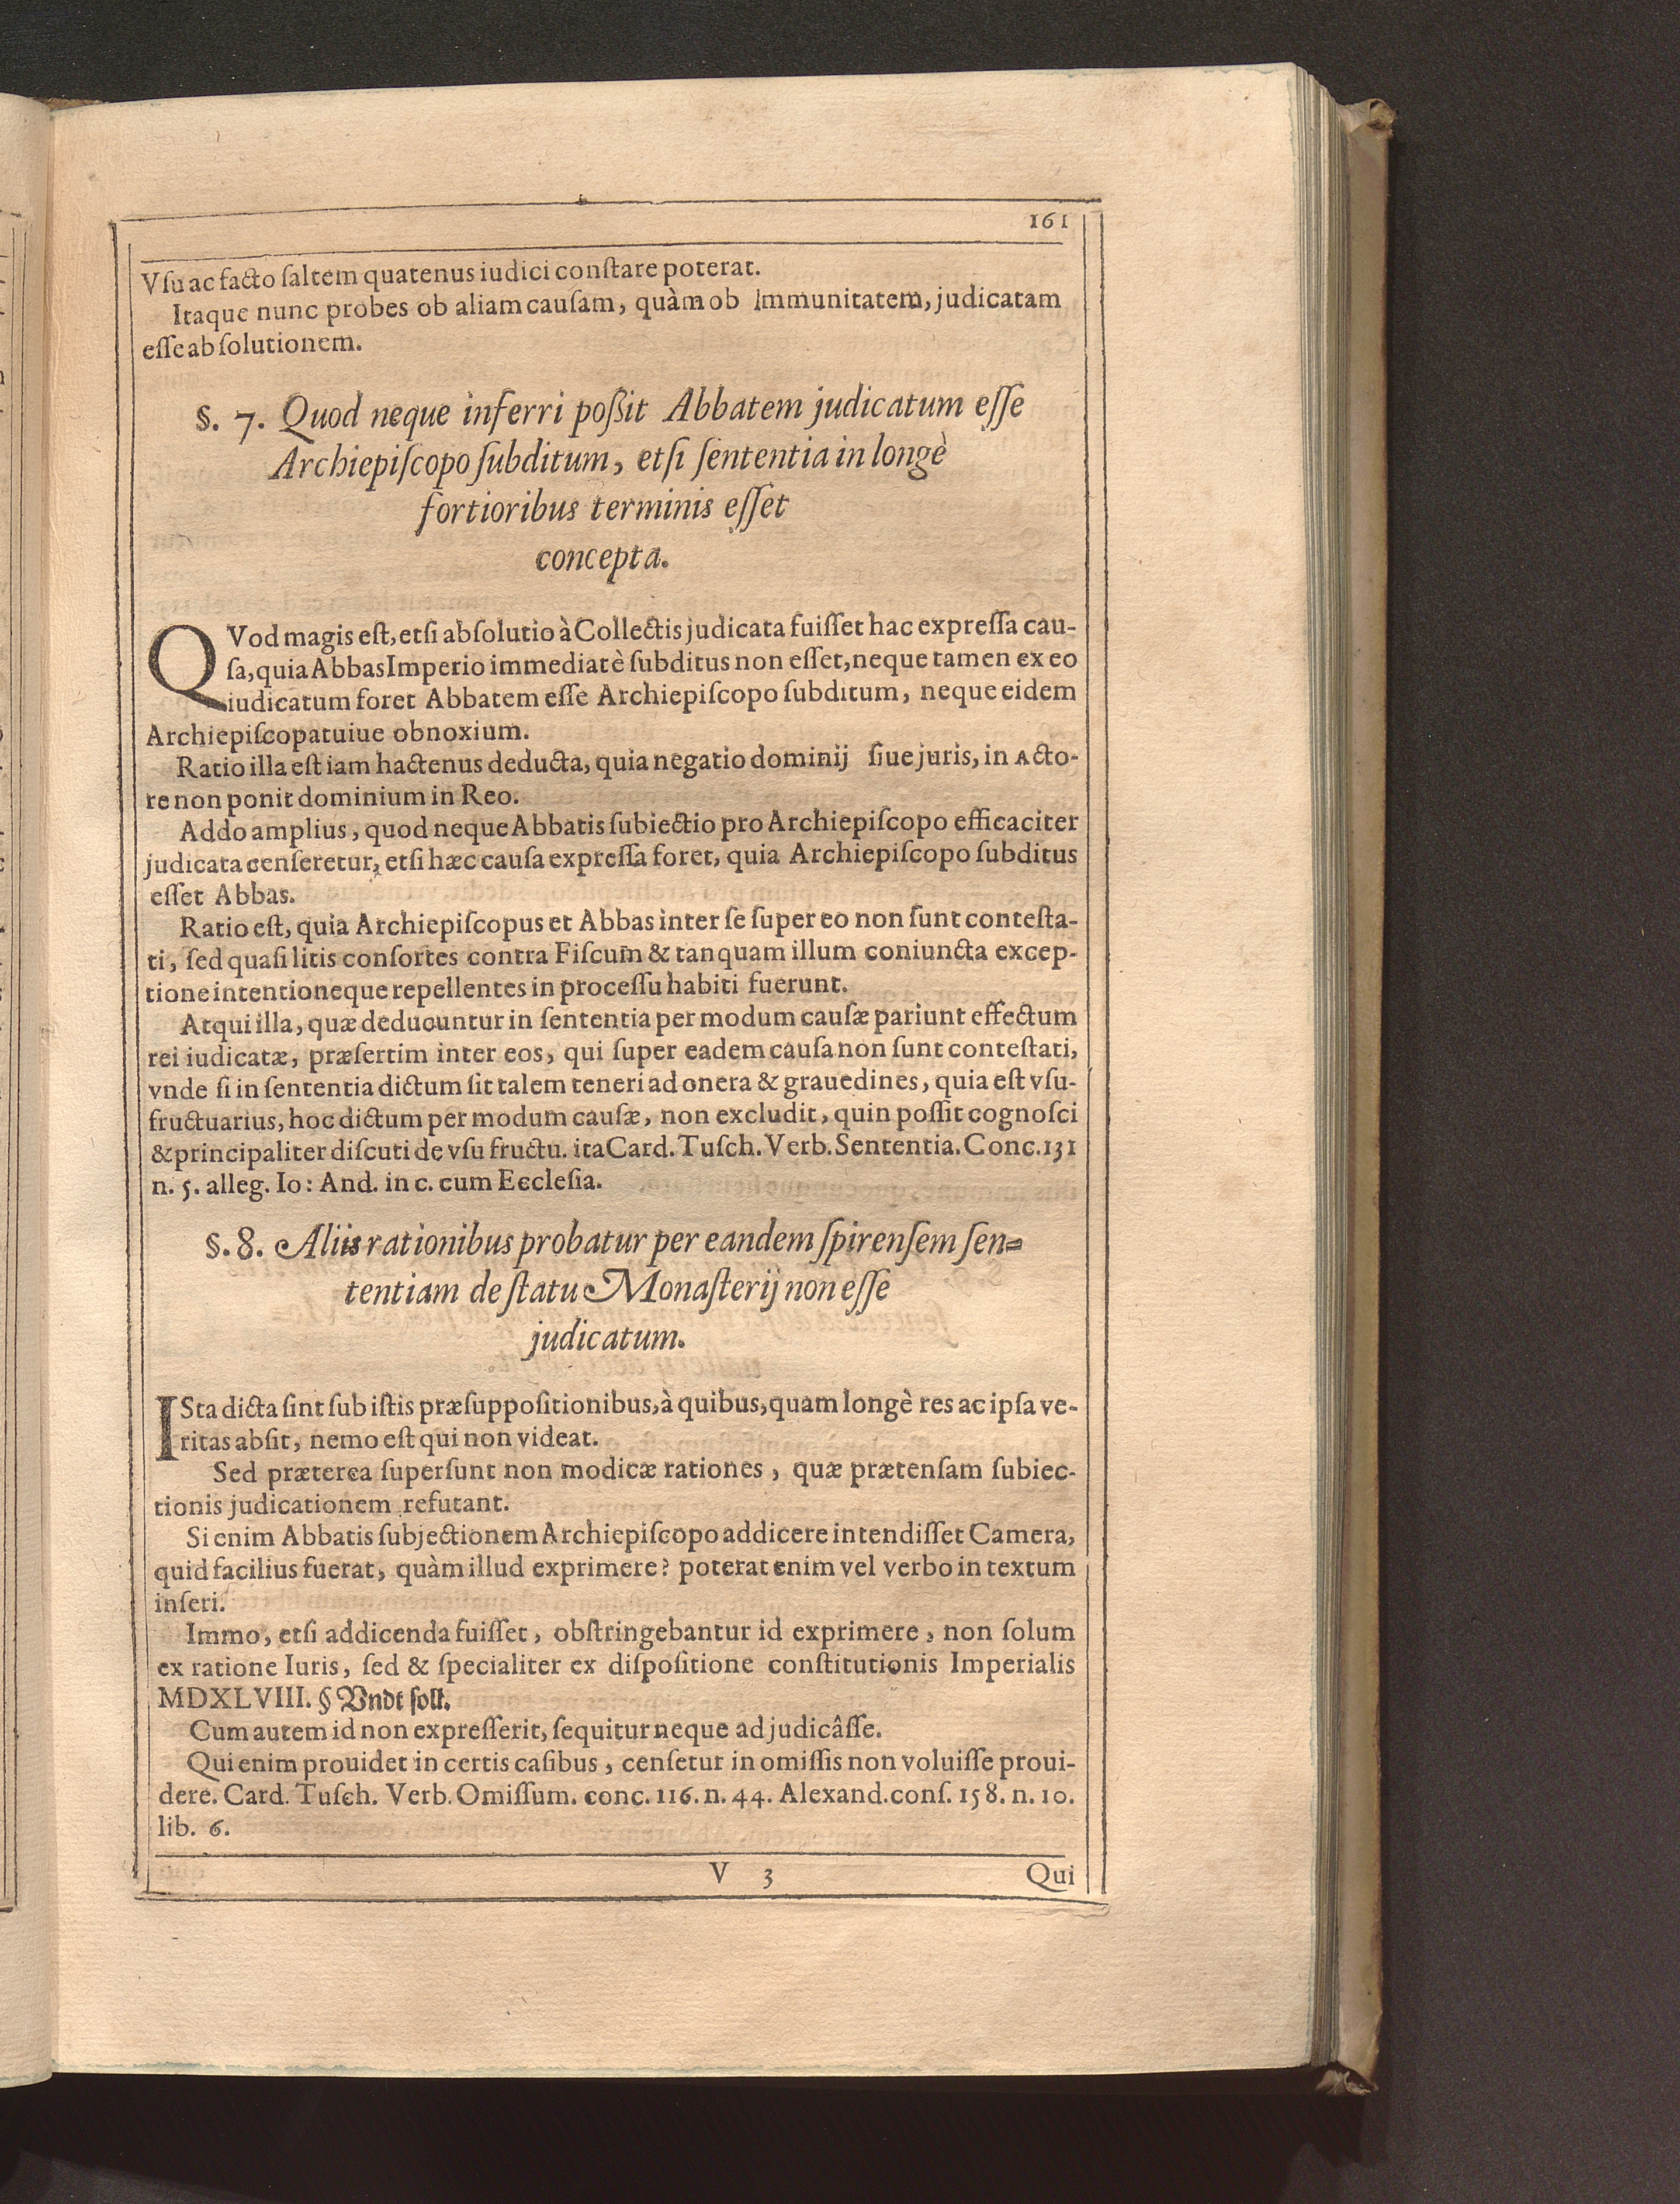 161
Vſu ac facto ſaltem quatenus iudici conſtare poterat.
Itaque nunc probes ob aliam cauſam, quàm ob Immunitatem, judicatam
eſſe abſolutionem.
§. 7. Quod neque inferri poßit Abbatem judicatum eſſe
Archiepiſcopo ſubditum, etſi ſententia in longè
fortioribus terminis eſſet
concepta.
QVod magis eſt, etſi abſolutio à Collectis judicata fuiſſet hac expreſſa cau-
ſa, quia Abbas Imperio immediatè ſubditus non eſſet, neque tamen ex eo
iudicatum foret Abbatem eſſe Archiepiſcopo ſubditum, neque eidem
Archiepiſcopatuiue obnoxium.
Ratio illa eſt iam hactenus deducta, quia negatio dominij ſiue juris, in Acto-
re non ponit dominium in Reo.
Addo amplius, quod neque Abbatis ſubiectio pro Archiepiſcopo efficaciter
judicata cenſeretur, etſi hæc cauſa expreſſa foret, quia Archiepiſcopo ſubditus
eſſet Abbas.
Ratio eſt, quia Archiepiſcopus et Abbas inter ſe ſuper eo non ſunt conteſta-
ti, ſed quaſi litis conſortes contra Fiſcum & tanquam illum coniuncta excep-
tione intentioneque repellentes in proceſſu habiti fuerunt.
Atqui illa, quæ deducuntur in ſententia per modum cauſæ pariunt effectum
rei iudicatæ, præſertim inter eos, qui ſuper eadem cauſa non ſunt conteſtati,
vnde ſi in ſententia dictum ſit talem teneri ad onera & grauedines, quia eſt vſu-
fructuarius, hoc dictum per modum cauſæ, non excludit, quin poſſit cognoſci
& principaliter diſcuti de vſu fructu. ita Card. Tuſch. Verb. Sententia. Conc. 131
n. 5. alleg. Io: And. in c. cum Eccleſia.
§. 8. Aliis rationibus probatur per eandem ſpirenſem ſen-
tentiam de ſtatu Monaſterij non eſſe
judicatum.
ISta dicta ſint ſub iſtis præſuppoſitionibus, à quibus, quam longè res ac ipſa ve-
ritas abſit, nemo eſt qui non videat.
Sed præterea ſuperſunt non modicæ rationes, quæ prætenſam ſubiec-
tionis judicationem refutant.
Si enim Abbatis ſubjectionem Archiepiſcopo addicere intendiſſet Camera,
quid facilius fuerat, quàm illud exprimere? poterat enim vel verbo in textum
inſeri.
Immo, etſi addicenda fuiſſet, obſtringebantur id exprimere, non ſolum
ex ratione Iuris, ſed & ſpecialiter ex diſpoſitione conſtitutionis Imperialis
MDXLVIII. § Vndt ſoll.
Cum autem id non expreſſerit, ſequitur neque adjudicâſſe.
Qui enim prouidet in certis caſibus, cenſetur in omiſſis non voluiſſe proui-
dere. Card. Tuſch. Verb. Omiſſum. conc. 116. n. 44. Alexand. conſ. 158. n. 10.
lib. 6.
V 3
Qui